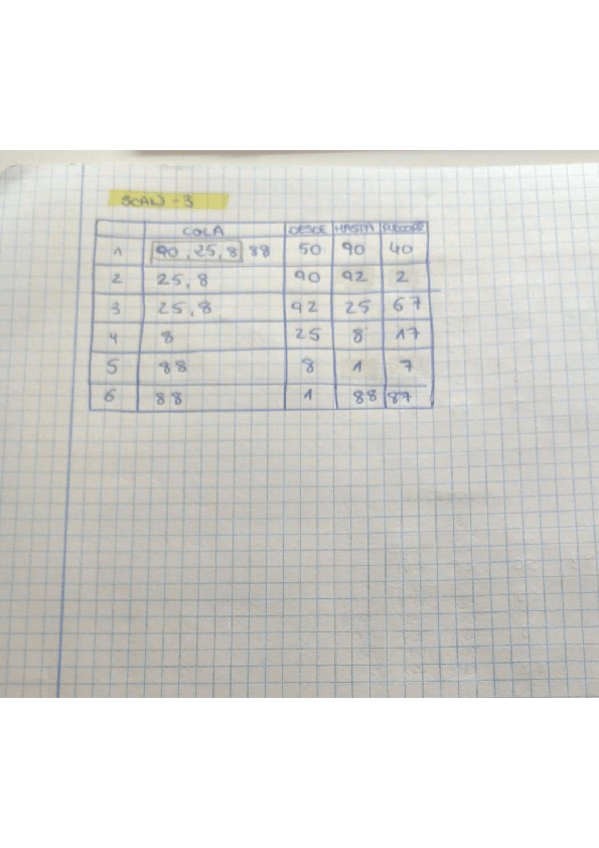 SCAN - 3
COLA DESDE HASTA RECORR
1 90, 25, 8 88 50 90 40
2 25, 8 90 92 2
3 25, 8 92 25 67
4 8 25 8 17
5 88 8 1 7
6 88 1 88 87